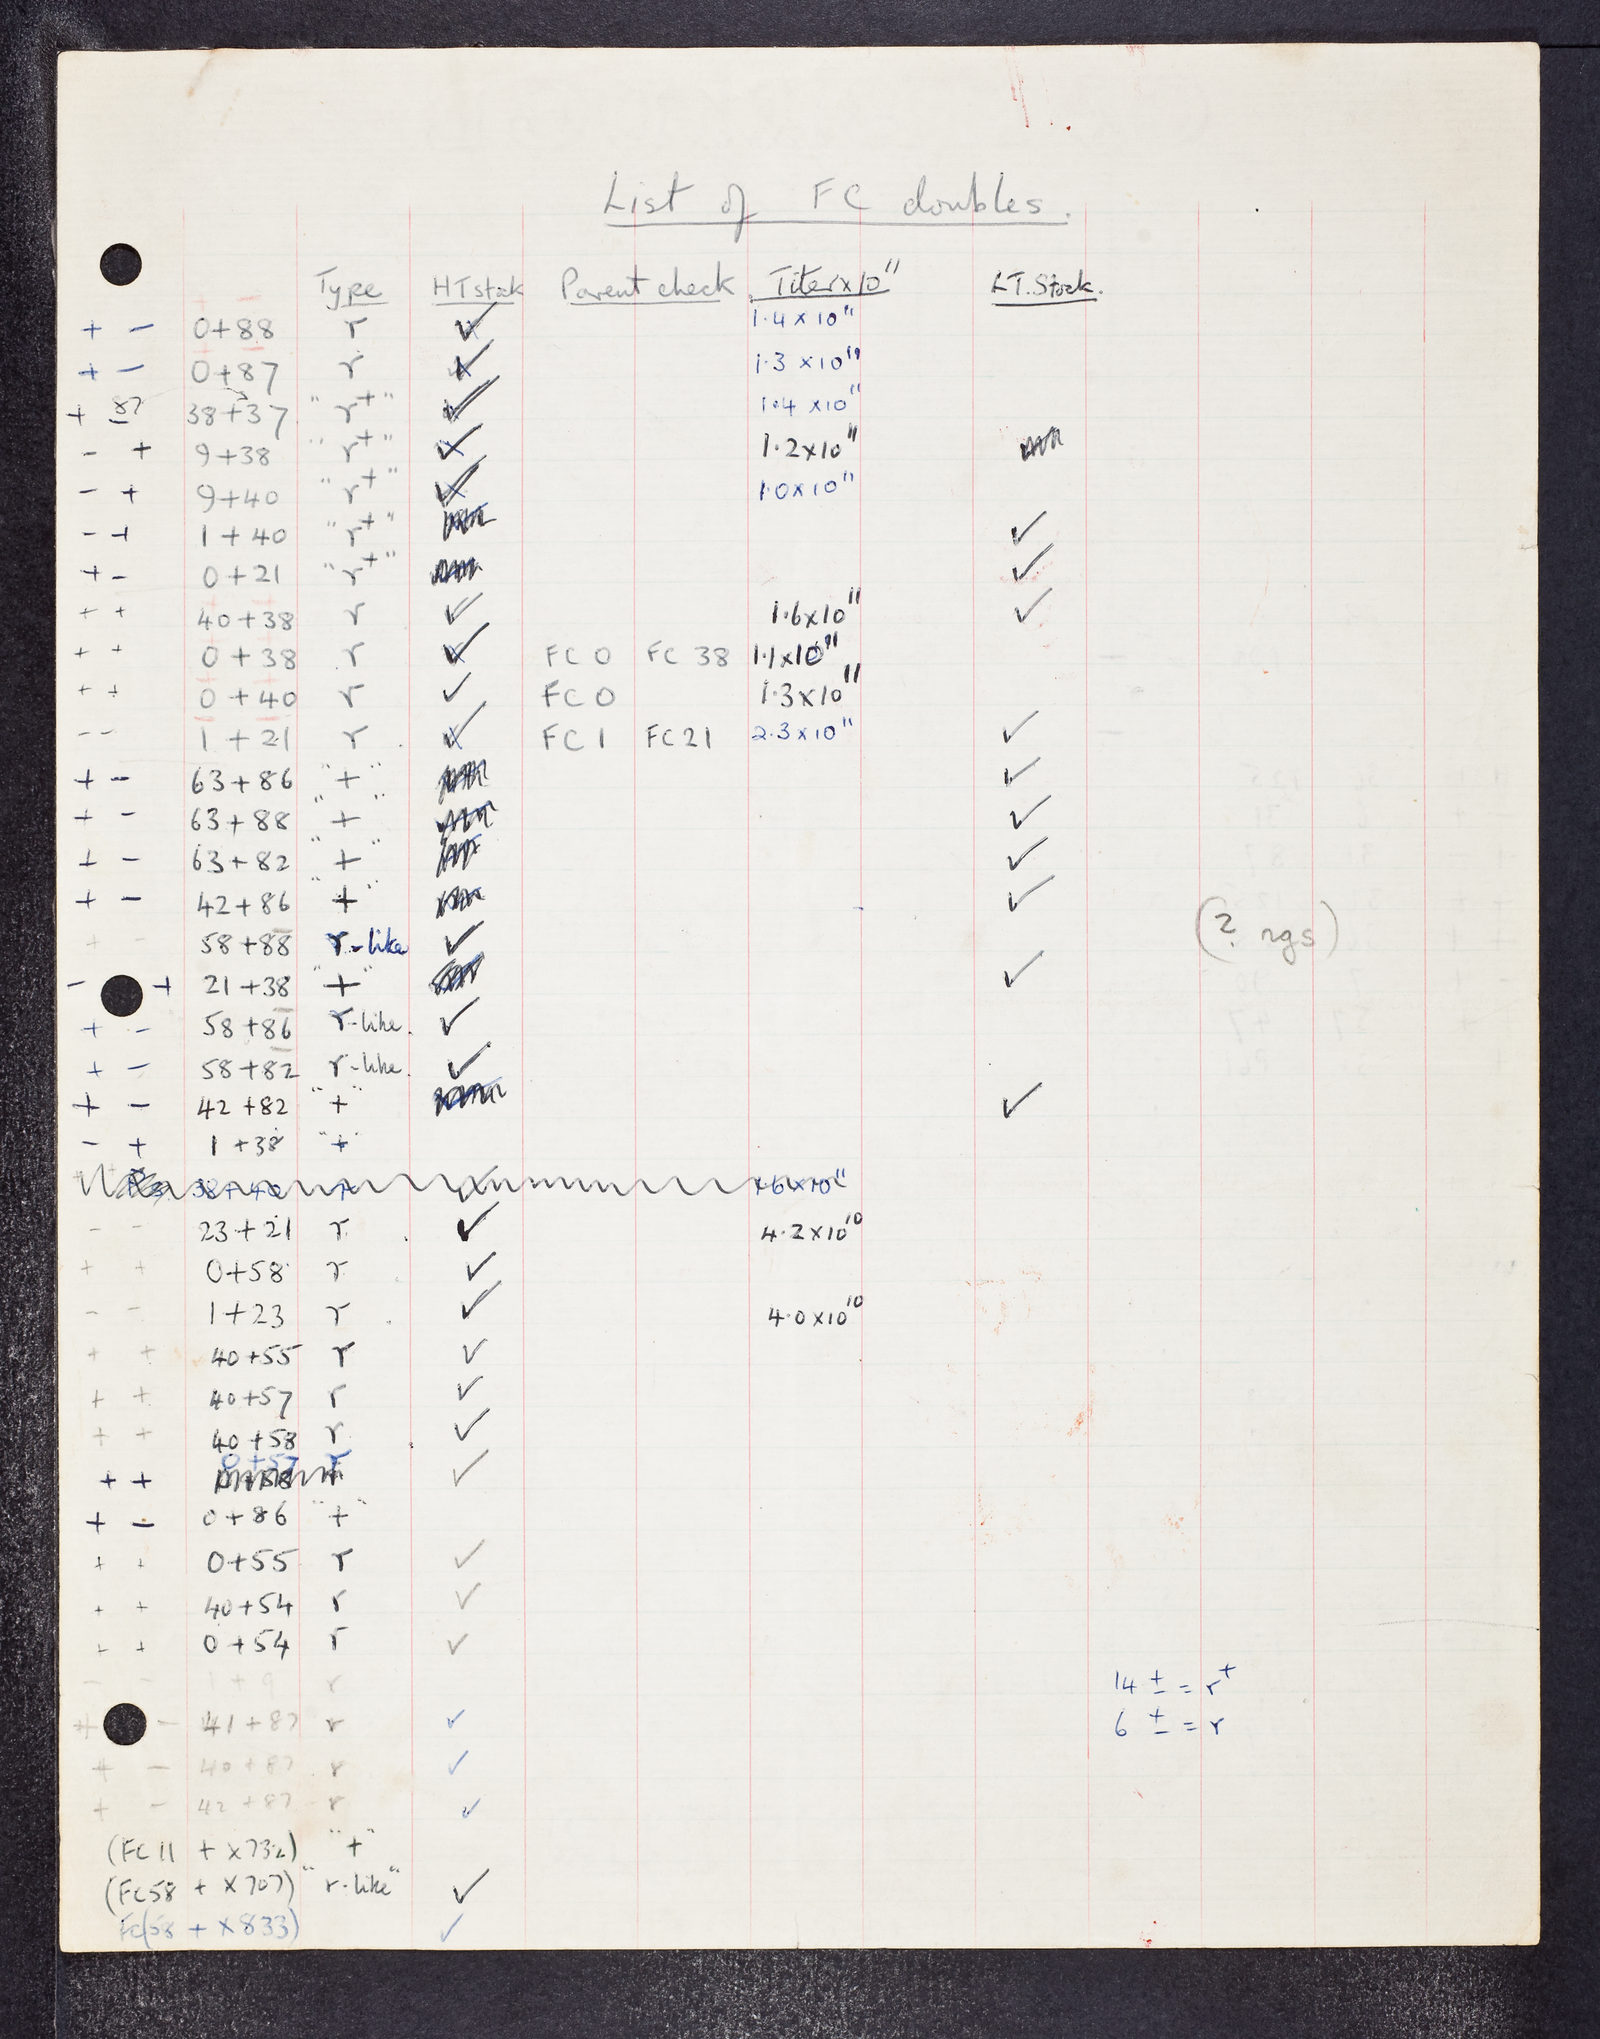 List of FC doubles.
Type HT stock Parent check Titer x 10¹¹ LT. Stock.
+ − 0+88 r ✓ 1.4 x 10¹¹
+ − 0+87 r ✓ 1.3 x 10¹¹
+ 87 38+37 "r⁺" ✓ 1.4 x10¹¹
− + 9+38 "r⁺" ✓ 1.2x10¹¹
− + 9+40 "r⁺" ✓ 1.0x10¹¹
− + 1+40 "r⁺" ✓
+ − 0+21 "r⁺" ✓
+ + 40+38 r ✓ 1.6x10¹¹ ✓
+ + 0+38 r ✓ FC 0 FC 38 1.1x10¹¹
+ + 0+40 r ✓ FC 0 1.3x10¹¹
− − 1+21 r ✓ FC 1 FC 21 2.3x10¹¹ ✓
+ − 63+86 "+" ✓
+ − 63+88 "+" ✓
+ − 63+82 "+" ✓
+ − 42+86 "+" ✓
+ − 58+88 r-like ✓ (? rgs)
− + 21+38 "+" ✓
+ − 58+86 r-like. ✓
+ − 58+82 r-like. ✓
+ − 42+82 "+" ✓
− + 1+38 "+"
38+40 r 1.6x10¹¹
− − 23+21 r ✓ 4.2x10¹⁰
+ + 0+58 r ✓
− − 1+23 r ✓ 4.0x10¹⁰
+ + 40+55 r ✓
+ + 40+57 r ✓
+ + 40+58 r ✓
0+57 r
+ + ✓
+ − 0+86 "+"
+ + 0+55 r ✓
+ + 40+54 r ✓
+ + 0+54 r ✓
− − 1+9 r
14 ± = r⁺
+ − 41+87 r ✓
6 ± = r
+ − 40+87 r ✓
+ − 42+87 r ✓
(FC11 + x732) "+"
(FC58 + x707) "r-like" ✓
FC(58 + x833) ✓